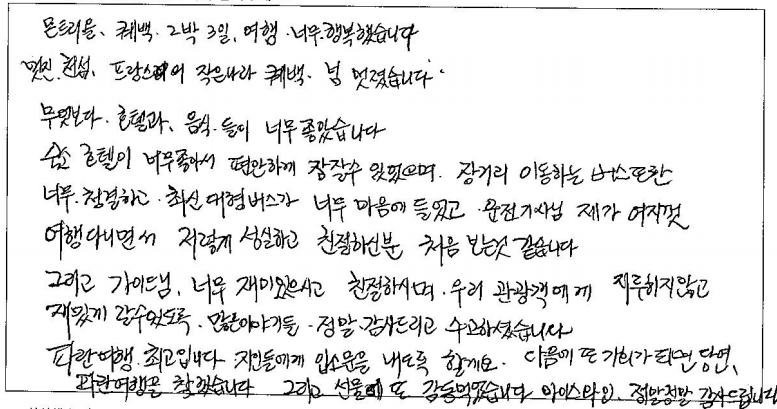 몬트리올. 퀘백. 2박 3일. 여행. 너무 행복했습니다
멋진. 천섬. 프랑스의 작은나라 퀘백. 넘 멋졌습니다.
무엇보다. 호텔과. 음식. 들이 너무 좋았습니다
숙소 호텔이 너무좋아서 편안하게 잠잘수 있었으며. 장거리 이동하는 버스또한
너무. 청결하고. 최신 대형버스가 너무 마음에 들었고. 운전기사님 제가 여지껏
여행다니면서 저렇게 성실하고 친절하신분 처음 보는것 같습니다
그리고 가이드님. 너무 재미있으시고 친절하시며. 우리 관광객에게 지루하지않고
재밌게 갈수있도록. 많은이야기들. 정말. 감사드리고 수고하셨습니다
파란여행. 최고입니다 지인들에게 입소문을 내도록 할게요. 다음에 또 기회가 되면 당연.
파란여행을 찾겠습니다 그리고 선물에 또 감동먹었습니다 아이스와인. 정말정말 감사드립니다